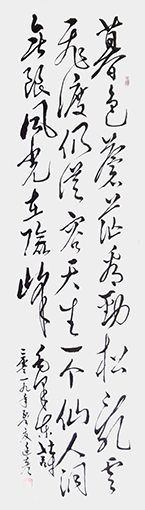 暮色蒼茫看勁松乱云
飛渡仍從容天生一个仙人洞
無限風光在險峰
毛澤東詩
二〇一九年